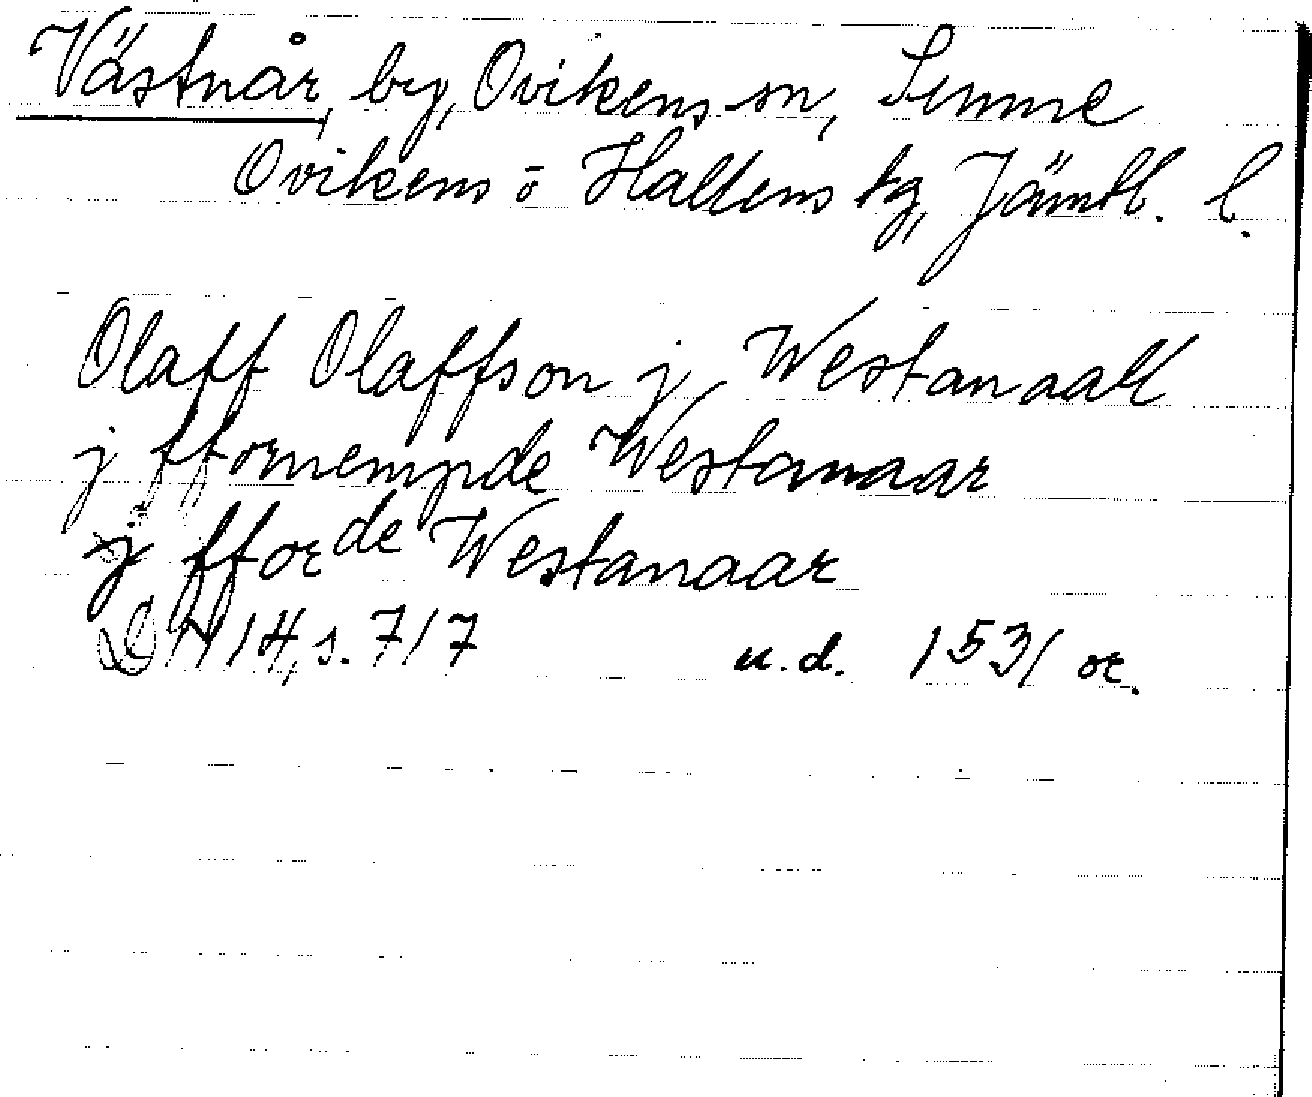 Västnår, by, Ovikens sn, Sunne
Ovikens o Hallens tg, Jämtl. l.
Olaff Olaffson j Westanaall
j ffornempde Westanaar
j fforde Westanaar
DN 14, s. 717 u.d. 1531 or.